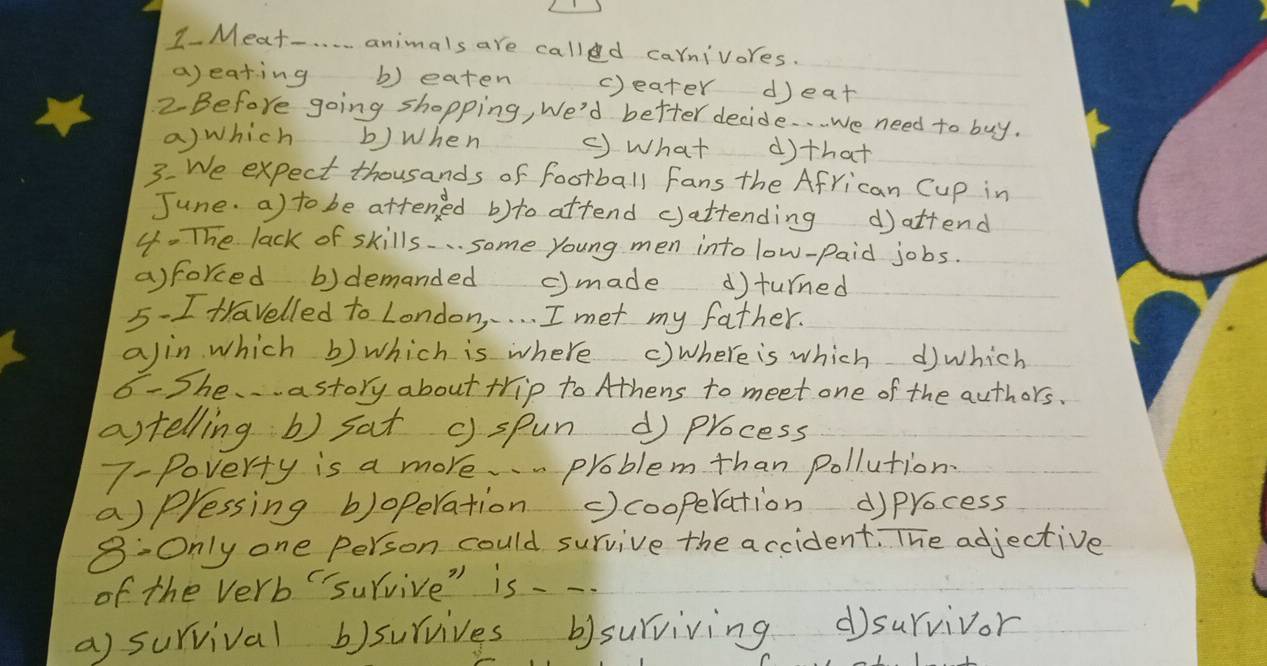 1
1- Meat-.... animals are called carnivores.
a) eating b) eaten c) eater d) eat
2- Before going shopping, we'd better decide....we need to buy.
a) which b) when c) what d) that
3- We expect thousands of football fans the African Cup in
June. a) to be attended b) to attend c) attending d) attend
4- The lack of skills....some young men into low-paid jobs.
a) forced b) demanded c) made d) turned
5- I travelled to London,.... I met my father.
a) in which b) which is where c) where is which d) which
6- She....a story about trip to Athens to meet one of the authors.
a) telling b) sat c) spun d) process
7- Poverty is a more.... problem than pollution.
a) pressing b) operation c) cooperation d) process
8- Only one person could survive the accident. The adjective
of the verb "survive" is - --.
a) survival b) survives b) surviving d) survivor